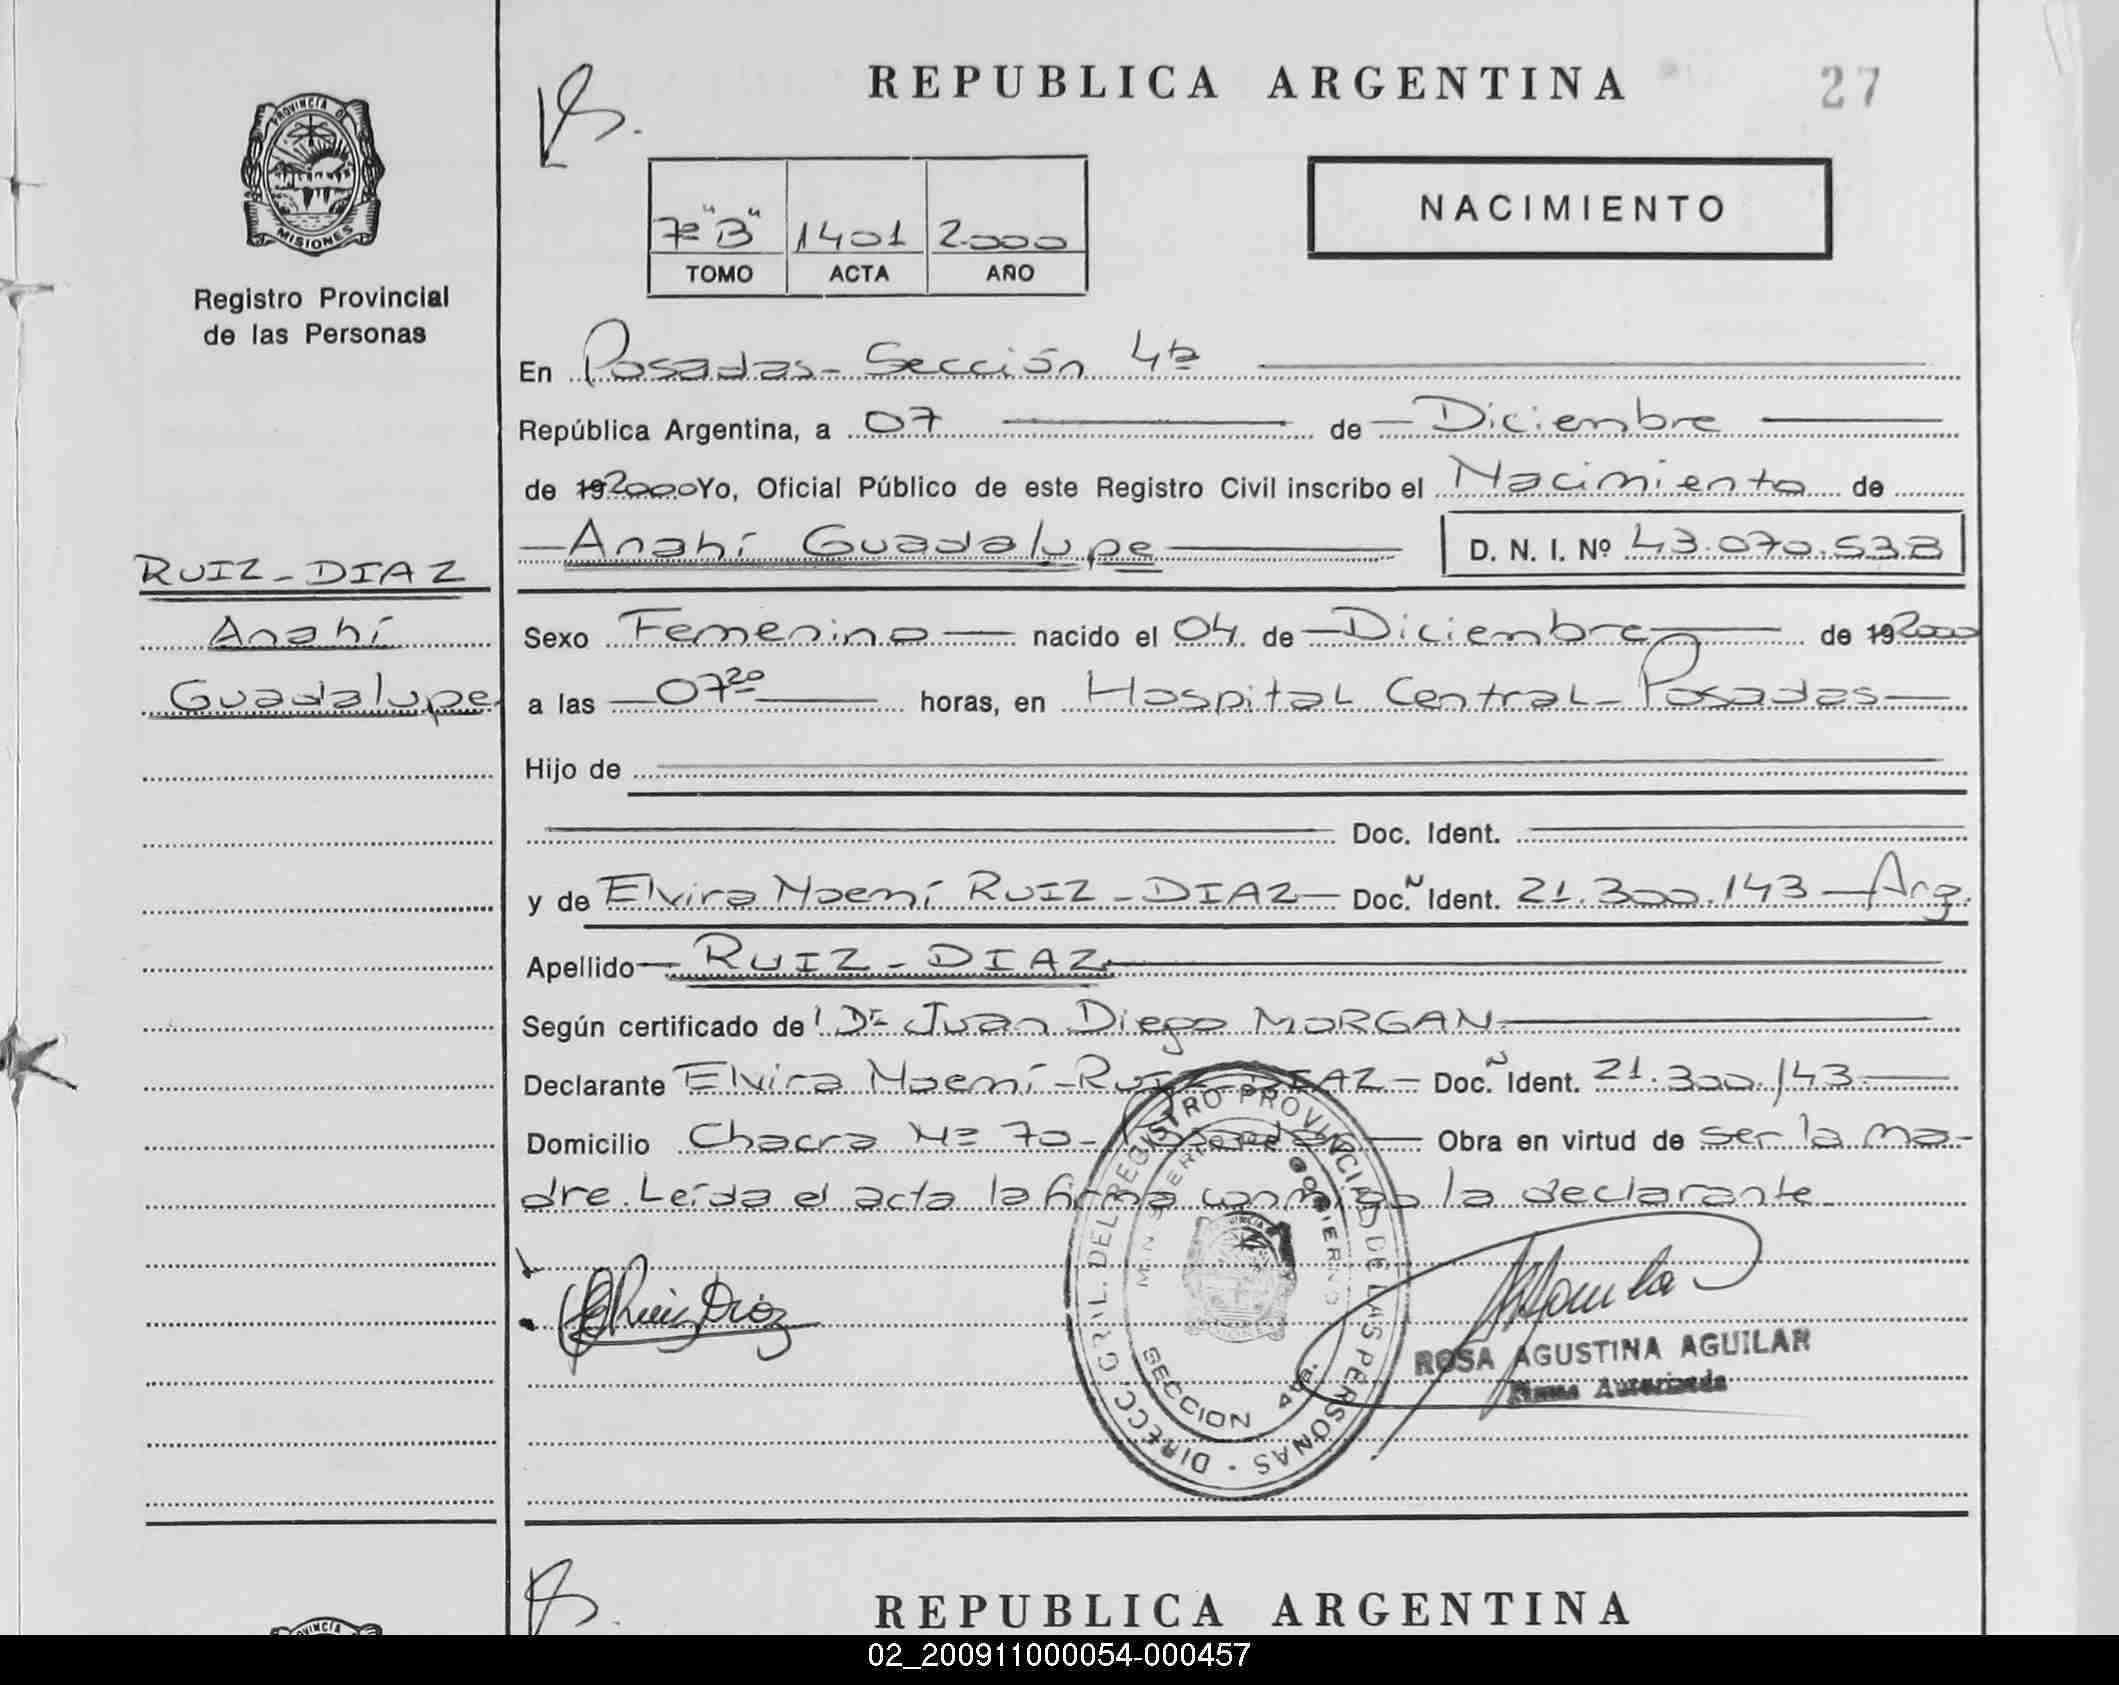 REPUBLICA ARGENTINA
27
PROVINCIA DE
MISIONES
Registro Provincial
de las Personas
7º "B" 1401 2.000
TOMO ACTA AÑO
NACIMIENTO
En Posadas - Sección 4ta
República Argentina, a 07 de Diciembre
de 19 2000 Yo, Oficial Público de este Registro Civil inscribo el Nacimiento de
Anahí Guadalupe D. N. I. Nº 43.070.538
RUIZ - DIAZ
Anahí
Guadalupe
Sexo Femenino nacido el 04 de Diciembre de 19 2000
a las 07 20 horas, en Hospital Central - Posadas
Hijo de
Doc. Ident.
y de Elvira Noemí RUIZ - DIAZ Doc. N Ident. 21.300.143 - Arg.
Apellido RUIZ - DIAZ
Según certificado de Dr Juan Diego MORGAN
Declarante Elvira Noemí - RUIZ - DIAZ - Doc. N Ident. 21.300.143
Domicilio Chacra Nº 70 - Posadas Obra en virtud de ser la ma-
dre. Leída el acta la firma conmigo la declarante
Ruiz Diaz
DIRECC. GRAL. DEL REGISTRO PROVINCIAL DE LAS PERSONAS -
MINISTERIO DE GOBIERNO
SECCION 4ta.
ROSA AGUSTINA AGUILAR
Firma Autorizada
REPUBLICA ARGENTINA
02_200911000054-000457